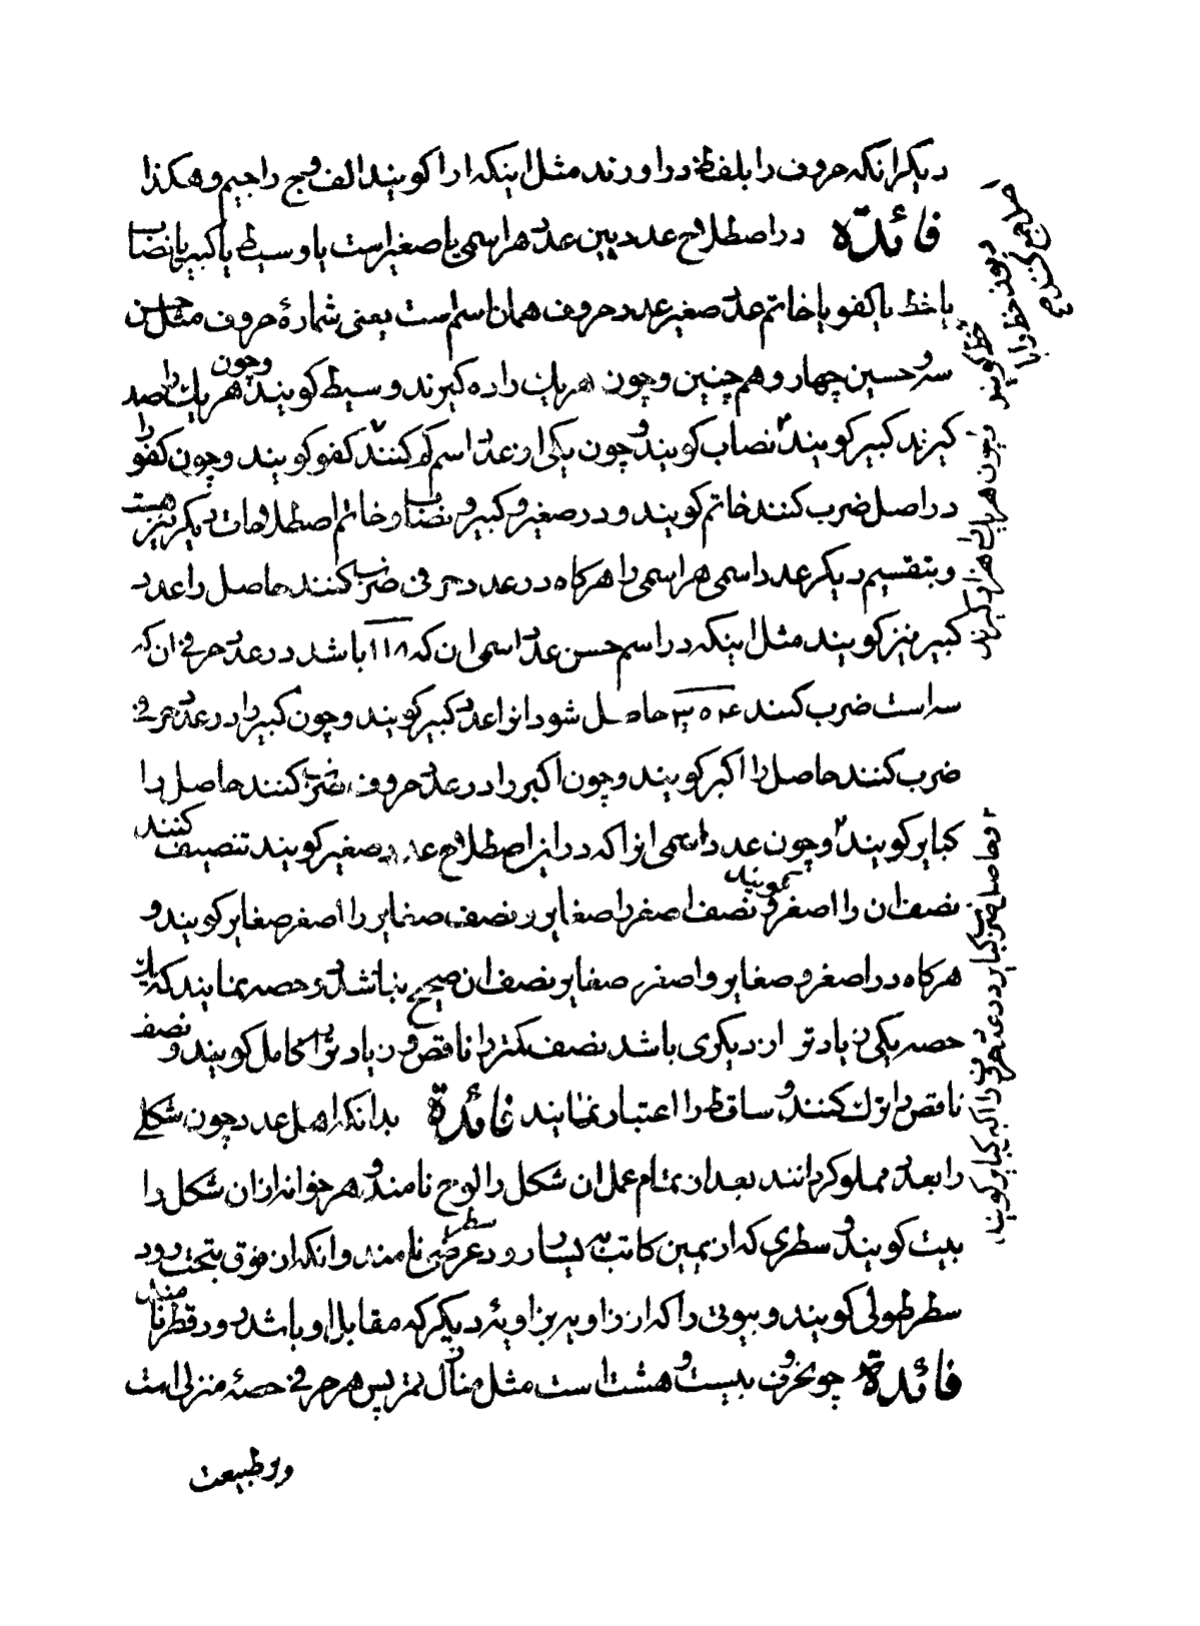 دیکر انکه حروف را بلفظ دراورند مثل اینکه ا را کویند الف و ج را جیم و هکذا
فائدّة در اصطلاح عددیین عدد هر اسمی یا صغیر است یا وسیط یا کبیر یا نصاب
یا خط یا کفو یا خاتم عدد صغیر عدد حروف همان اسم است یعنی شمارهٔ حروف مثل حسن
سه و حسین چهار و هم چنین و چون هر یک را ده کیرند وسیط کویند و چون هر یک را صد
کیرند کبیر کویند ۲ نصاب کویند و چون یکی از عدد اسم کم کنند کفو کویند و چون کفو را
در اصل ضرب کنند خاتم کویند و در صغیر و کبیر و نصاب و خاتم اصطلاحات دیکر نیز هست
و بتقسیم دیکر عدد اسمی هر اسمی را هرکاه در عدد حرفی ضرب کنند حاصل را عدد
کبیر نیز کویند مثل اینکه در اسم حسن عدد اسمی ان که ۱۱۸ باشد در عدد حرفی ان که
سه است ضرب کنند ۳۵۴ حاصل شود انرا عدد کبیر کویند و چون کبیر را در عدد حرفی
ضرب کنند حاصل را اکبر کویند و چون اکبر را در عدد حروف ضرب کنند حاصل را
کبایر کویند ۲ و چون عدد اسمی انرا که در این اصطلاح عدد صغیر کویند تنصیف کنند
نصف ان را اصغر کویند و نصف اصغر را صغایر و نصف صغایر را اصغر صغایر کویند و
هرکاه در اصغر و صغایر و اصغر صغایر نصف ان صحیح نباشد دو حصه نمایند که یک
حصه یکی زیادتر از دیکری باشد نصف کمتر را ناقص و زیادتر را کامل کویند و نصف
ناقص را ترک کنند و ساقط را اعتبار نمایند فائدّة بدانکه اهل عدد چون شکلی
را بعدد مملو کردانند بعد از تمام عمل ان شکل را لوح نامند و هر خانه از ان شکل را
بیت کویند و سطری که از یمین کاتب به یسار رود سطر عرضی نامند و انکه از فوق بتحت رود
سطر طولی کویند و بیوتی را که از زاویه بزاویهٔ دیکر که مقابل او باشد برود قطر نامند
فائدّة چون حروف بیست و هشت است مثل منازل قمر پس هر حرفی حصهٔ منزلی است
و بر طبیعت
و چون هر یک را هزار کیرند
خط کویند
و چون خط را با
۲ و حاصل ضرب کبایر در عدد حرفی را اکبر کبایر کویند